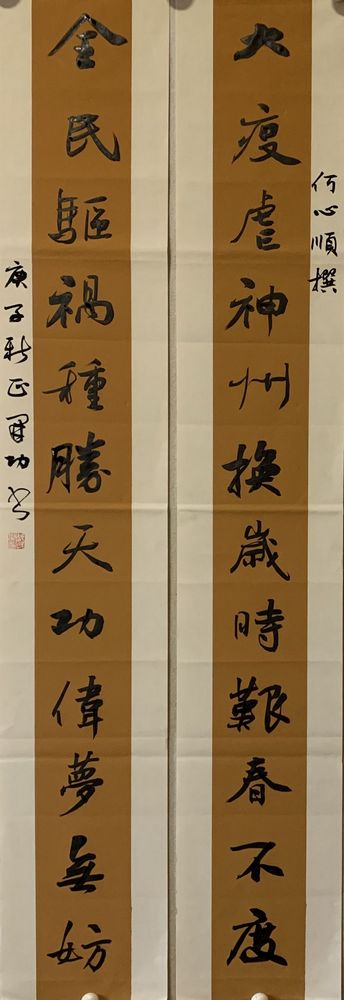 何心順撰
大疫虐神州換歲時艱春不度
全民驅禍種勝天功偉夢無妨
庚子新正功书